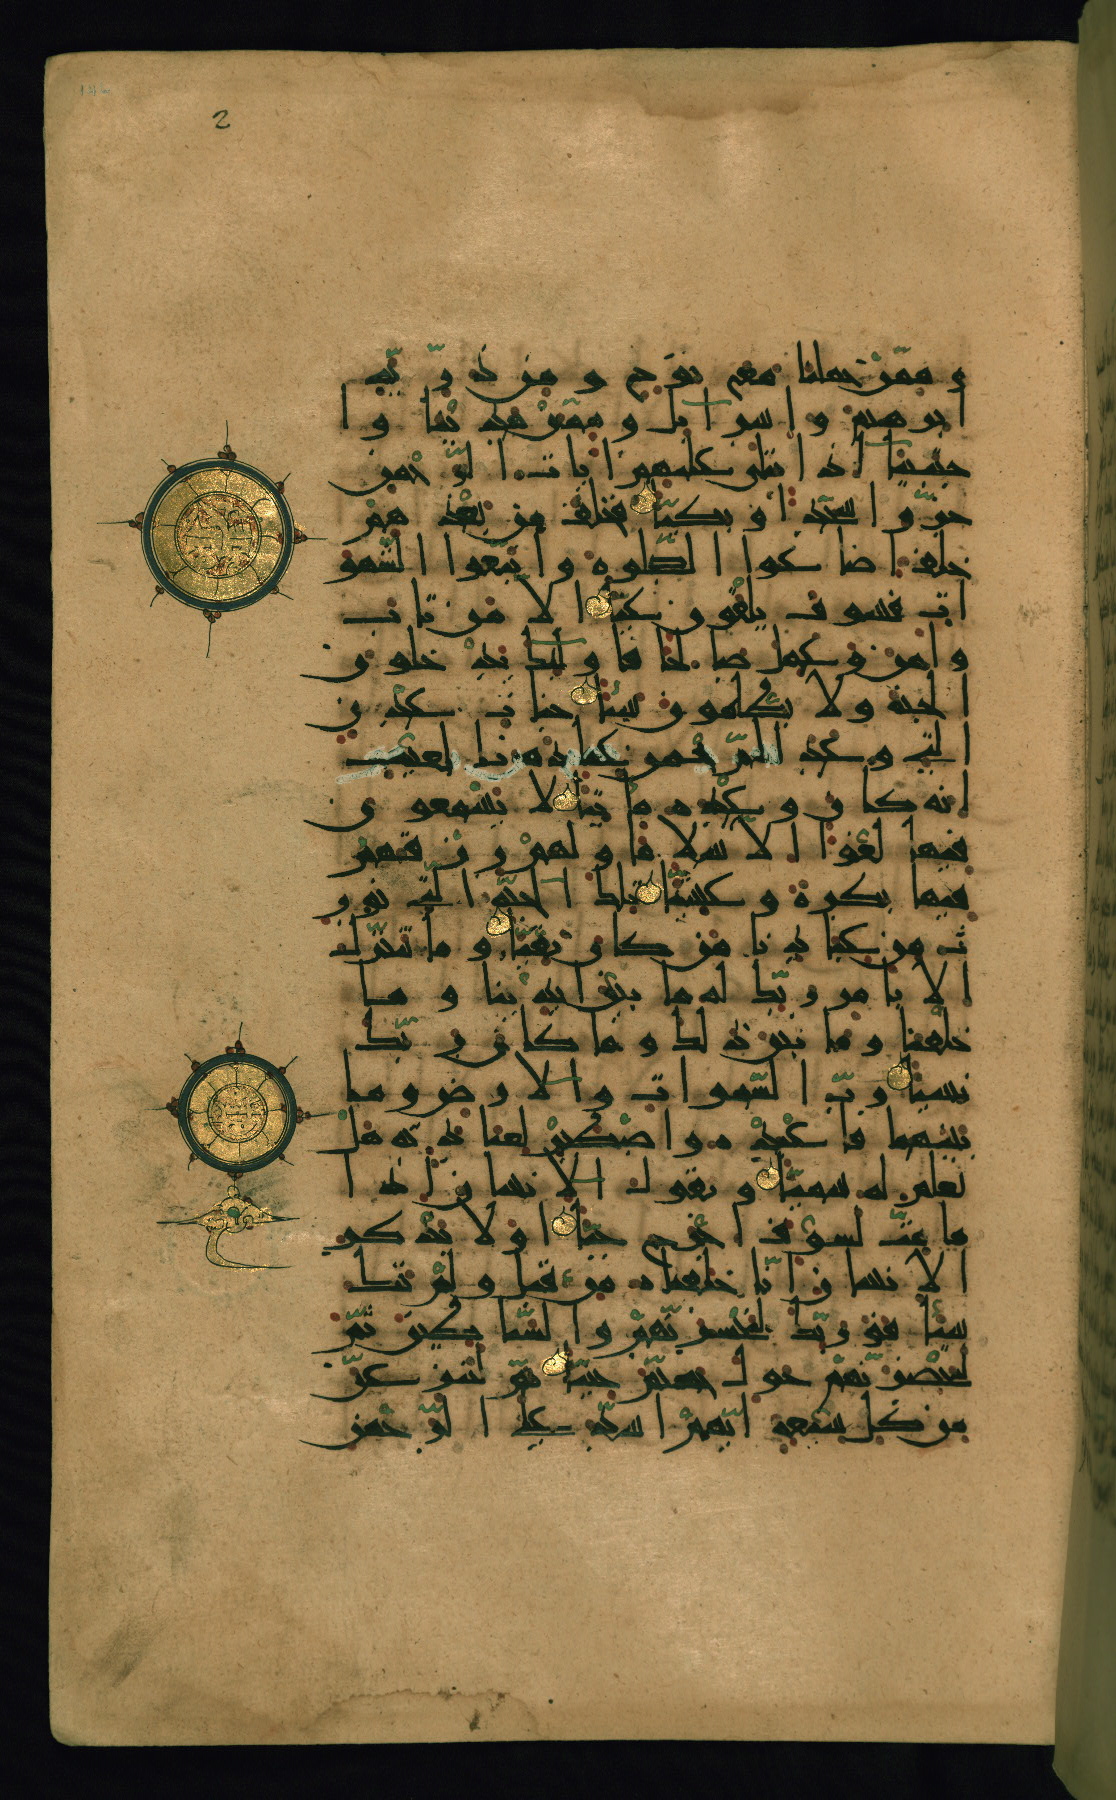 2
و ممن حملنا مع نوح و من ذرية
ابرهيم و اسرايل و ممن هدينا و ا
جتبينا اذا تتلى عليهم ايات الرحمن
خروا سجدا و بكيا فخلف من بعدهم
خلف اضاعوا الصلوة و اتبعوا الشهو
ات فسوف يلقون غيا الا من تاب
و امن و عمل صالحا فاولئك يدخلون
الجنة ولا يظلمون شيئا جنات عدن
التي وعد الرحمن عباده بالغيب
انه كان وعده ماتيا لا يسمعون
فيها لغوا الا سلاما و لهم رزقهم
فيها بكرة و عشيا تلك الجنة التي نور
ث من عبادنا من كان تقيا و ما نتنزل
الا بامر ربك له ما بين ايدينا و ما
خلفنا و ما بين ذلك و ما كان ربك
نسيا رب السموات و الارض و ما
بينهما فاعبده و اصطبر لعبادته هل
تعلم له سميا و يقول الانسان اذا
ما مت لسوف اخرج حيا اولا يذكر
الانسان انا خلقناه من قبل و لم يك
شيئا فو ربك لنحشرنهم و الشياطين ثم
لنحضرنهم حول جهنم جثيا ثم لننزعن
من كل شيعة ايهم اشد على الرحمن